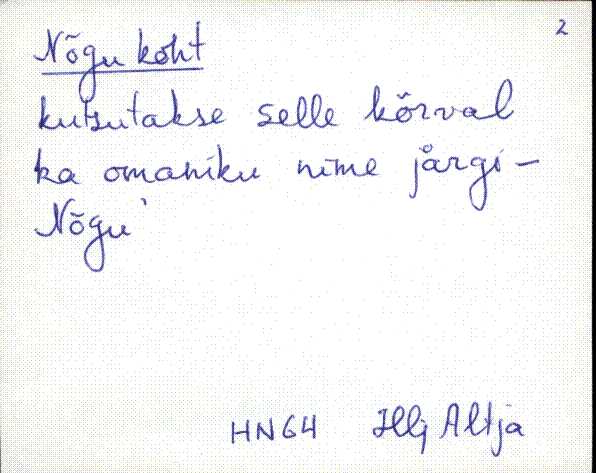 2
Nõgu koht
kutsutakse selle kõrval
ka omaniku nime järgi –
Nõgu'
HN64 Hlj Altja